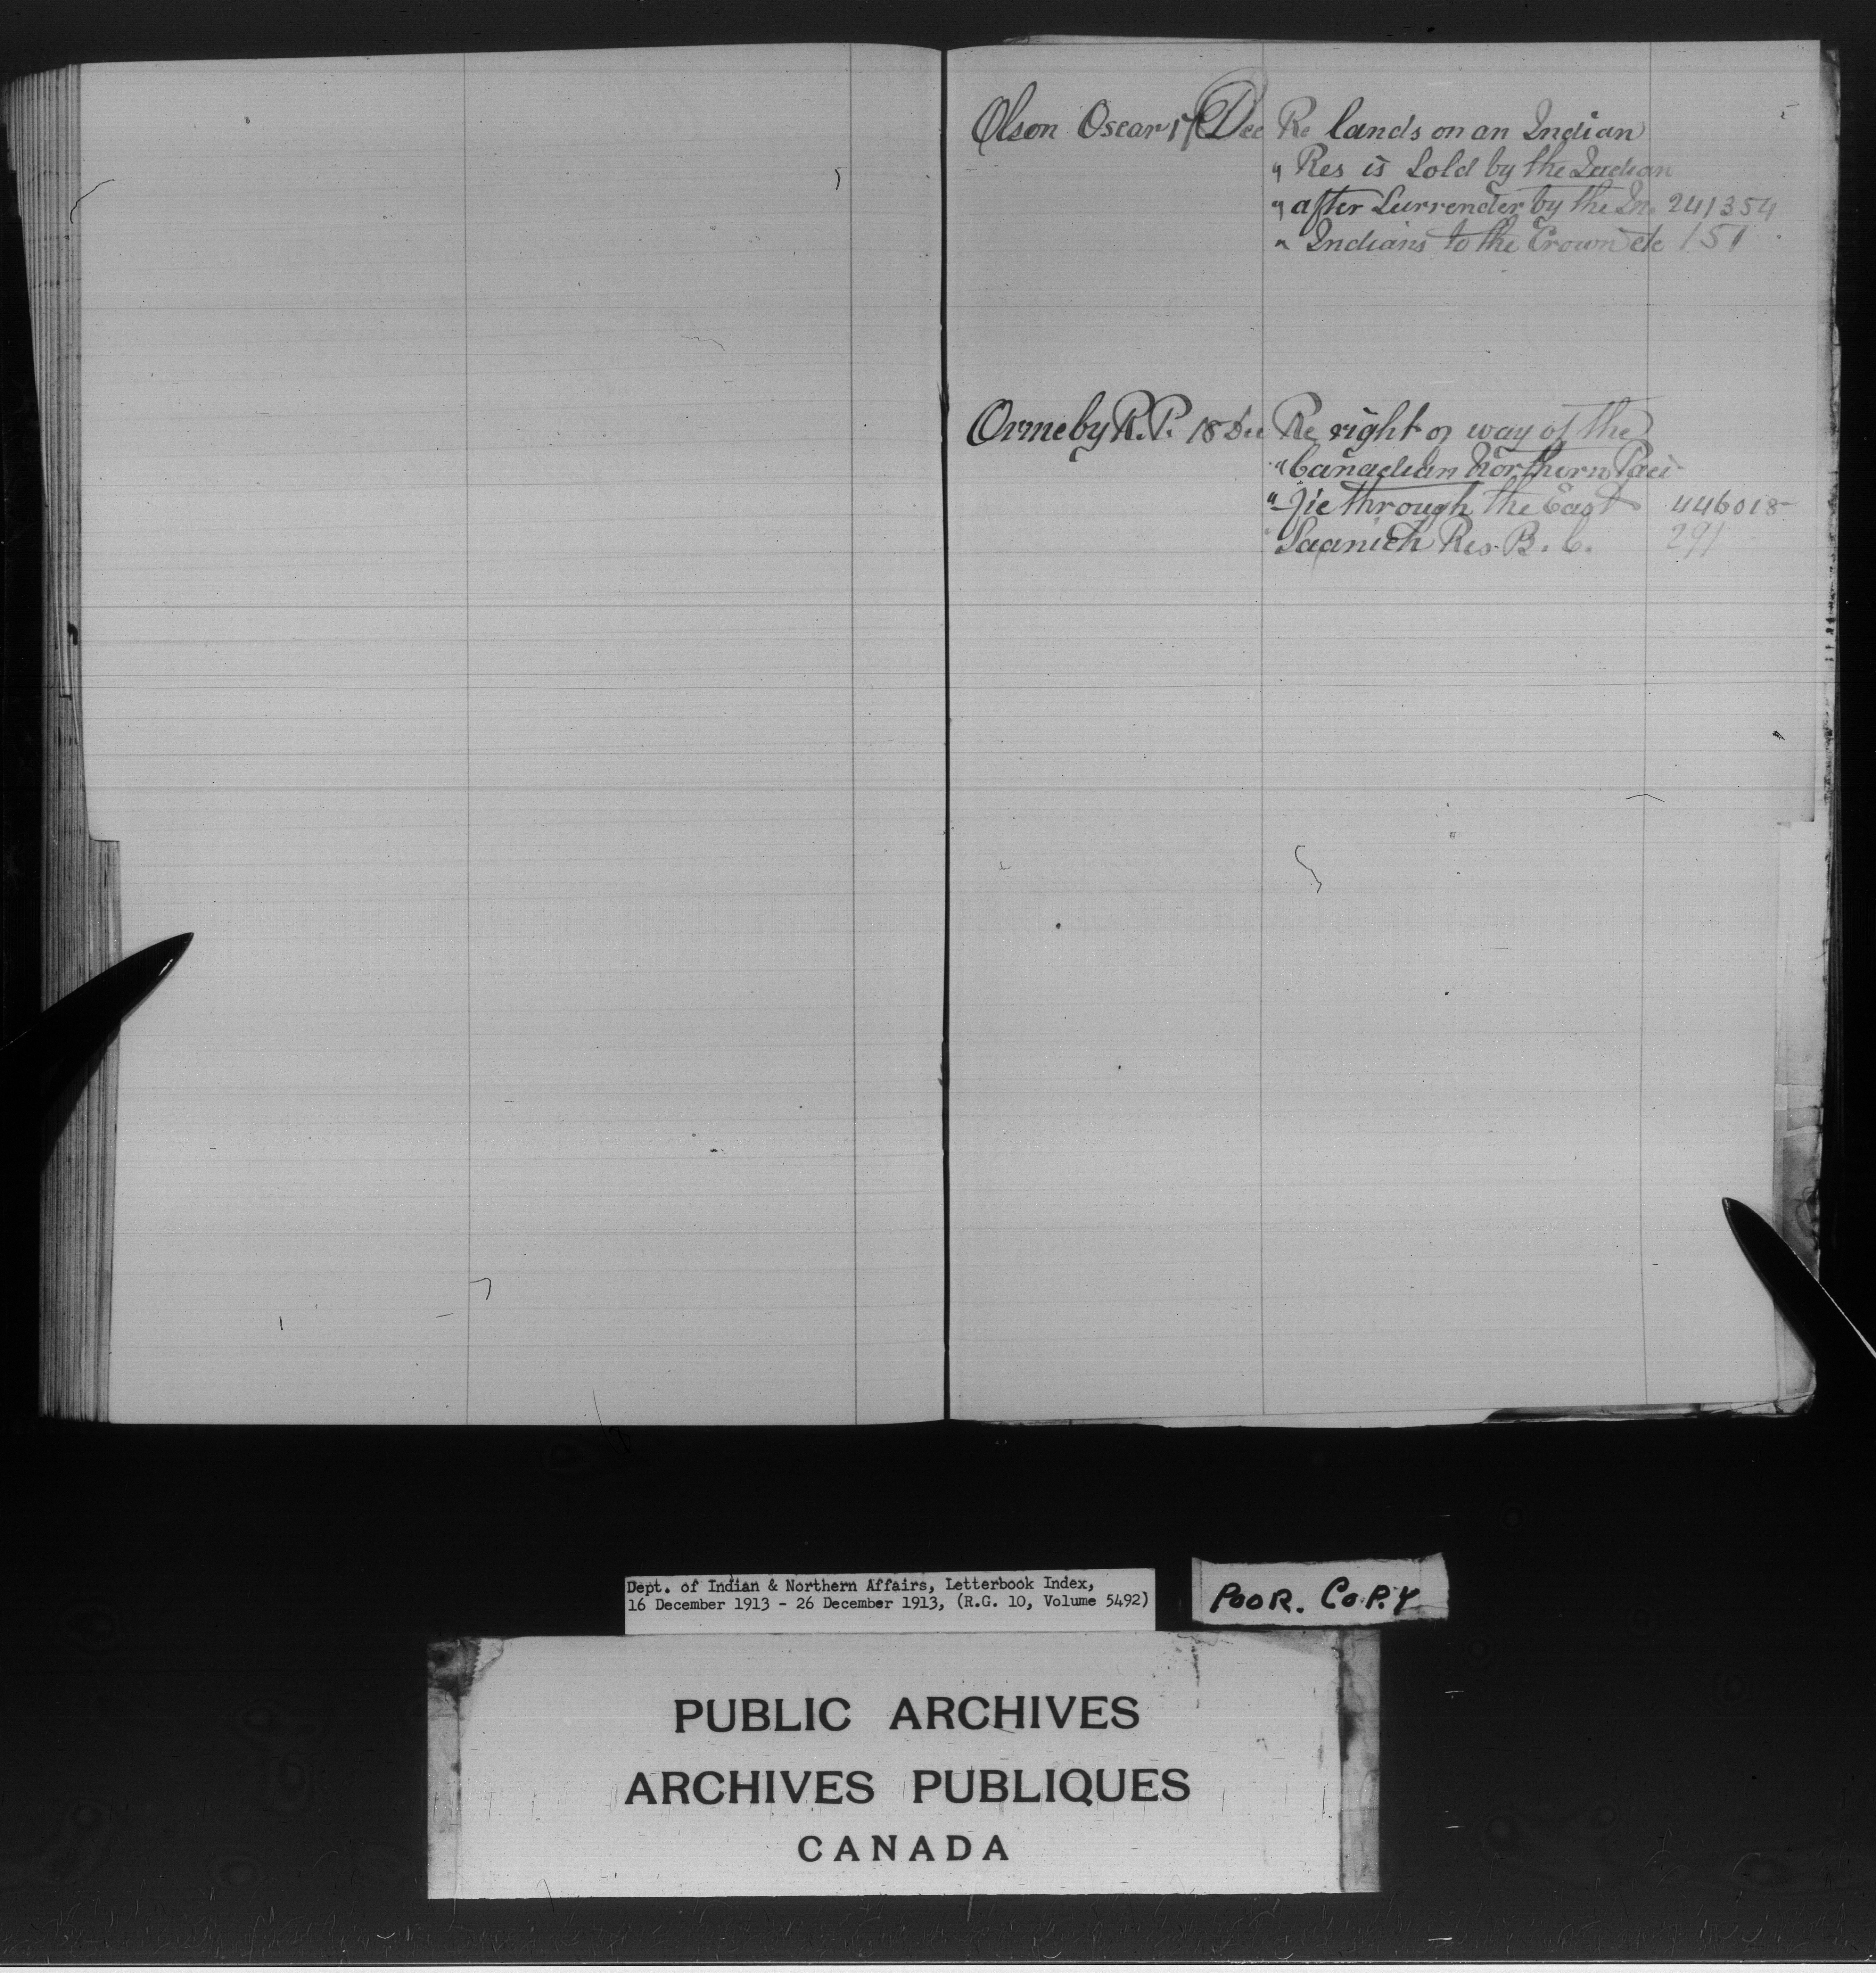 Olson Oscar 17 Dec Re lands on an Indian
" Res is sold by the Indian
" after surrender by the In. 241354
" Indians to the Crown etc 151
Ormeby R.P. 18 Dec Re right of way of the
" Canadian Northern Paci-
" -fic through the East 446018-
" Saanich Res. B.C. 291
Dept. of Indian & Northern Affairs, Letterbook Index,
16 December 1913 - 26 December 1913, (R.G. 10, Volume 5492)
POOR. COPY
PUBLIC ARCHIVES
ARCHIVES PUBLIQUES
CANADA